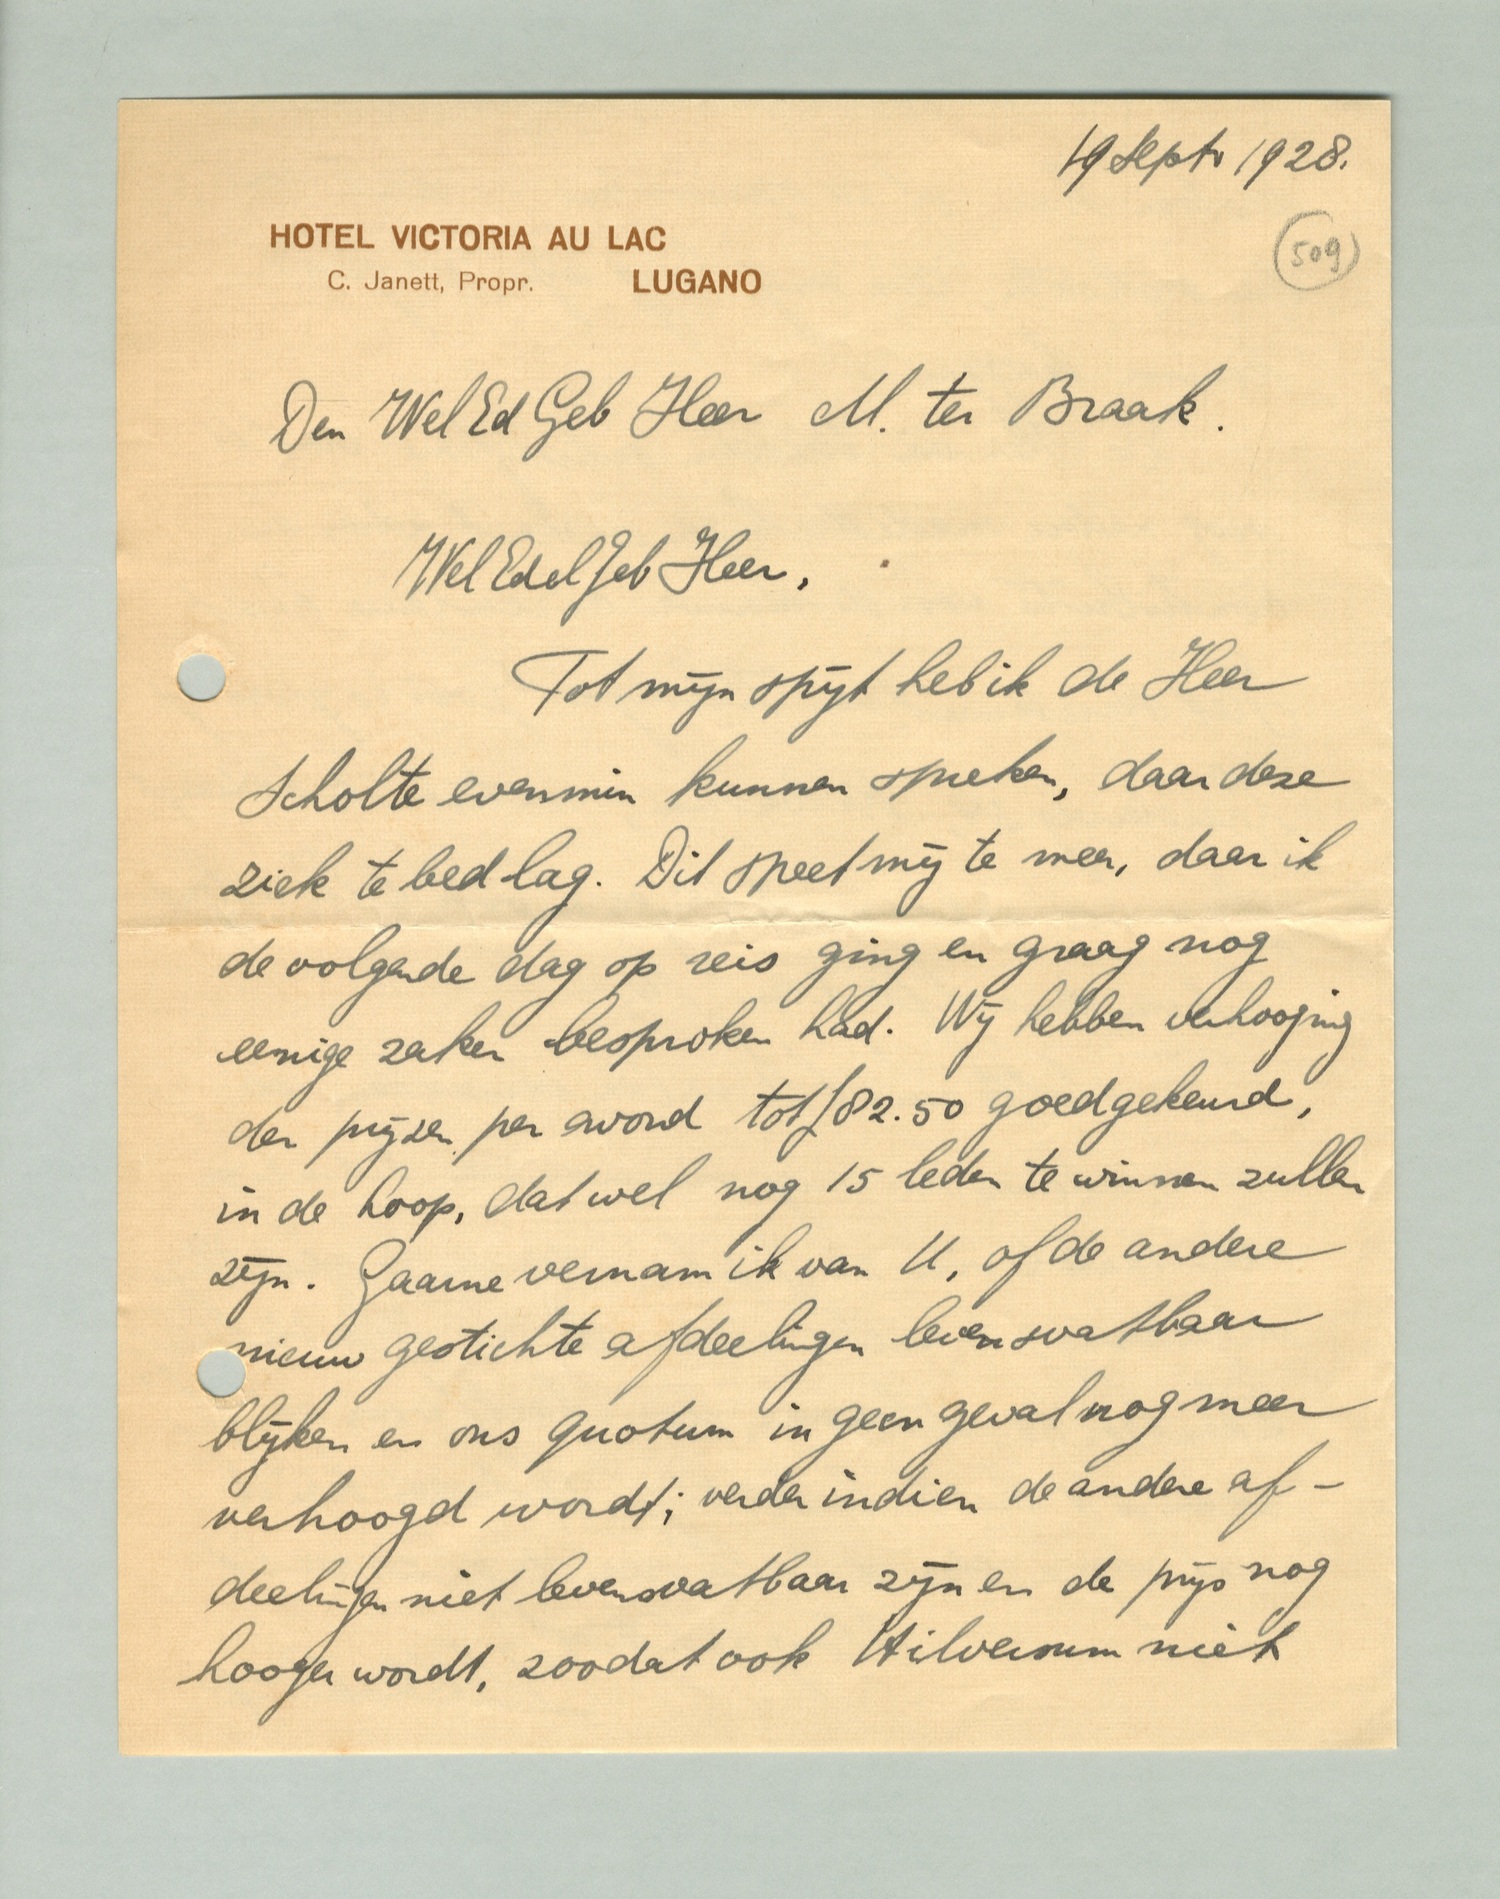 19 Sept. 1928.
509
HOTEL VICTORIA AU LAC
C. Janett, Propr. LUGANO
Den WelEdGeb Heer M. ter Braak.
WelEdelGeb Heer,
Tot mijn spijt heb ik de Heer
Scholte evenmin kunnen spreken, daar deze
ziek te bed lag. Dit speet mij te meer, daar ik
de volgende dag op reis ging en graag nog
eenige zaken besproken had. Wij hebben verhooging
der prijzen per avond tot f 82.50 goedgekeurd,
in de hoop, dat wel nog 15 leden te winnen zullen
zijn. Gaarne vernam ik van U, of de andere
nieuw gestichte afdeelingen levensvatbaar
blijken en ons quotum in geen geval nog meer
verhoogd wordt; verder indien de andere af-
deelingen niet levensvatbaar zijn en de prijs nog
hooger wordt, zoodat ook Hilversum niet